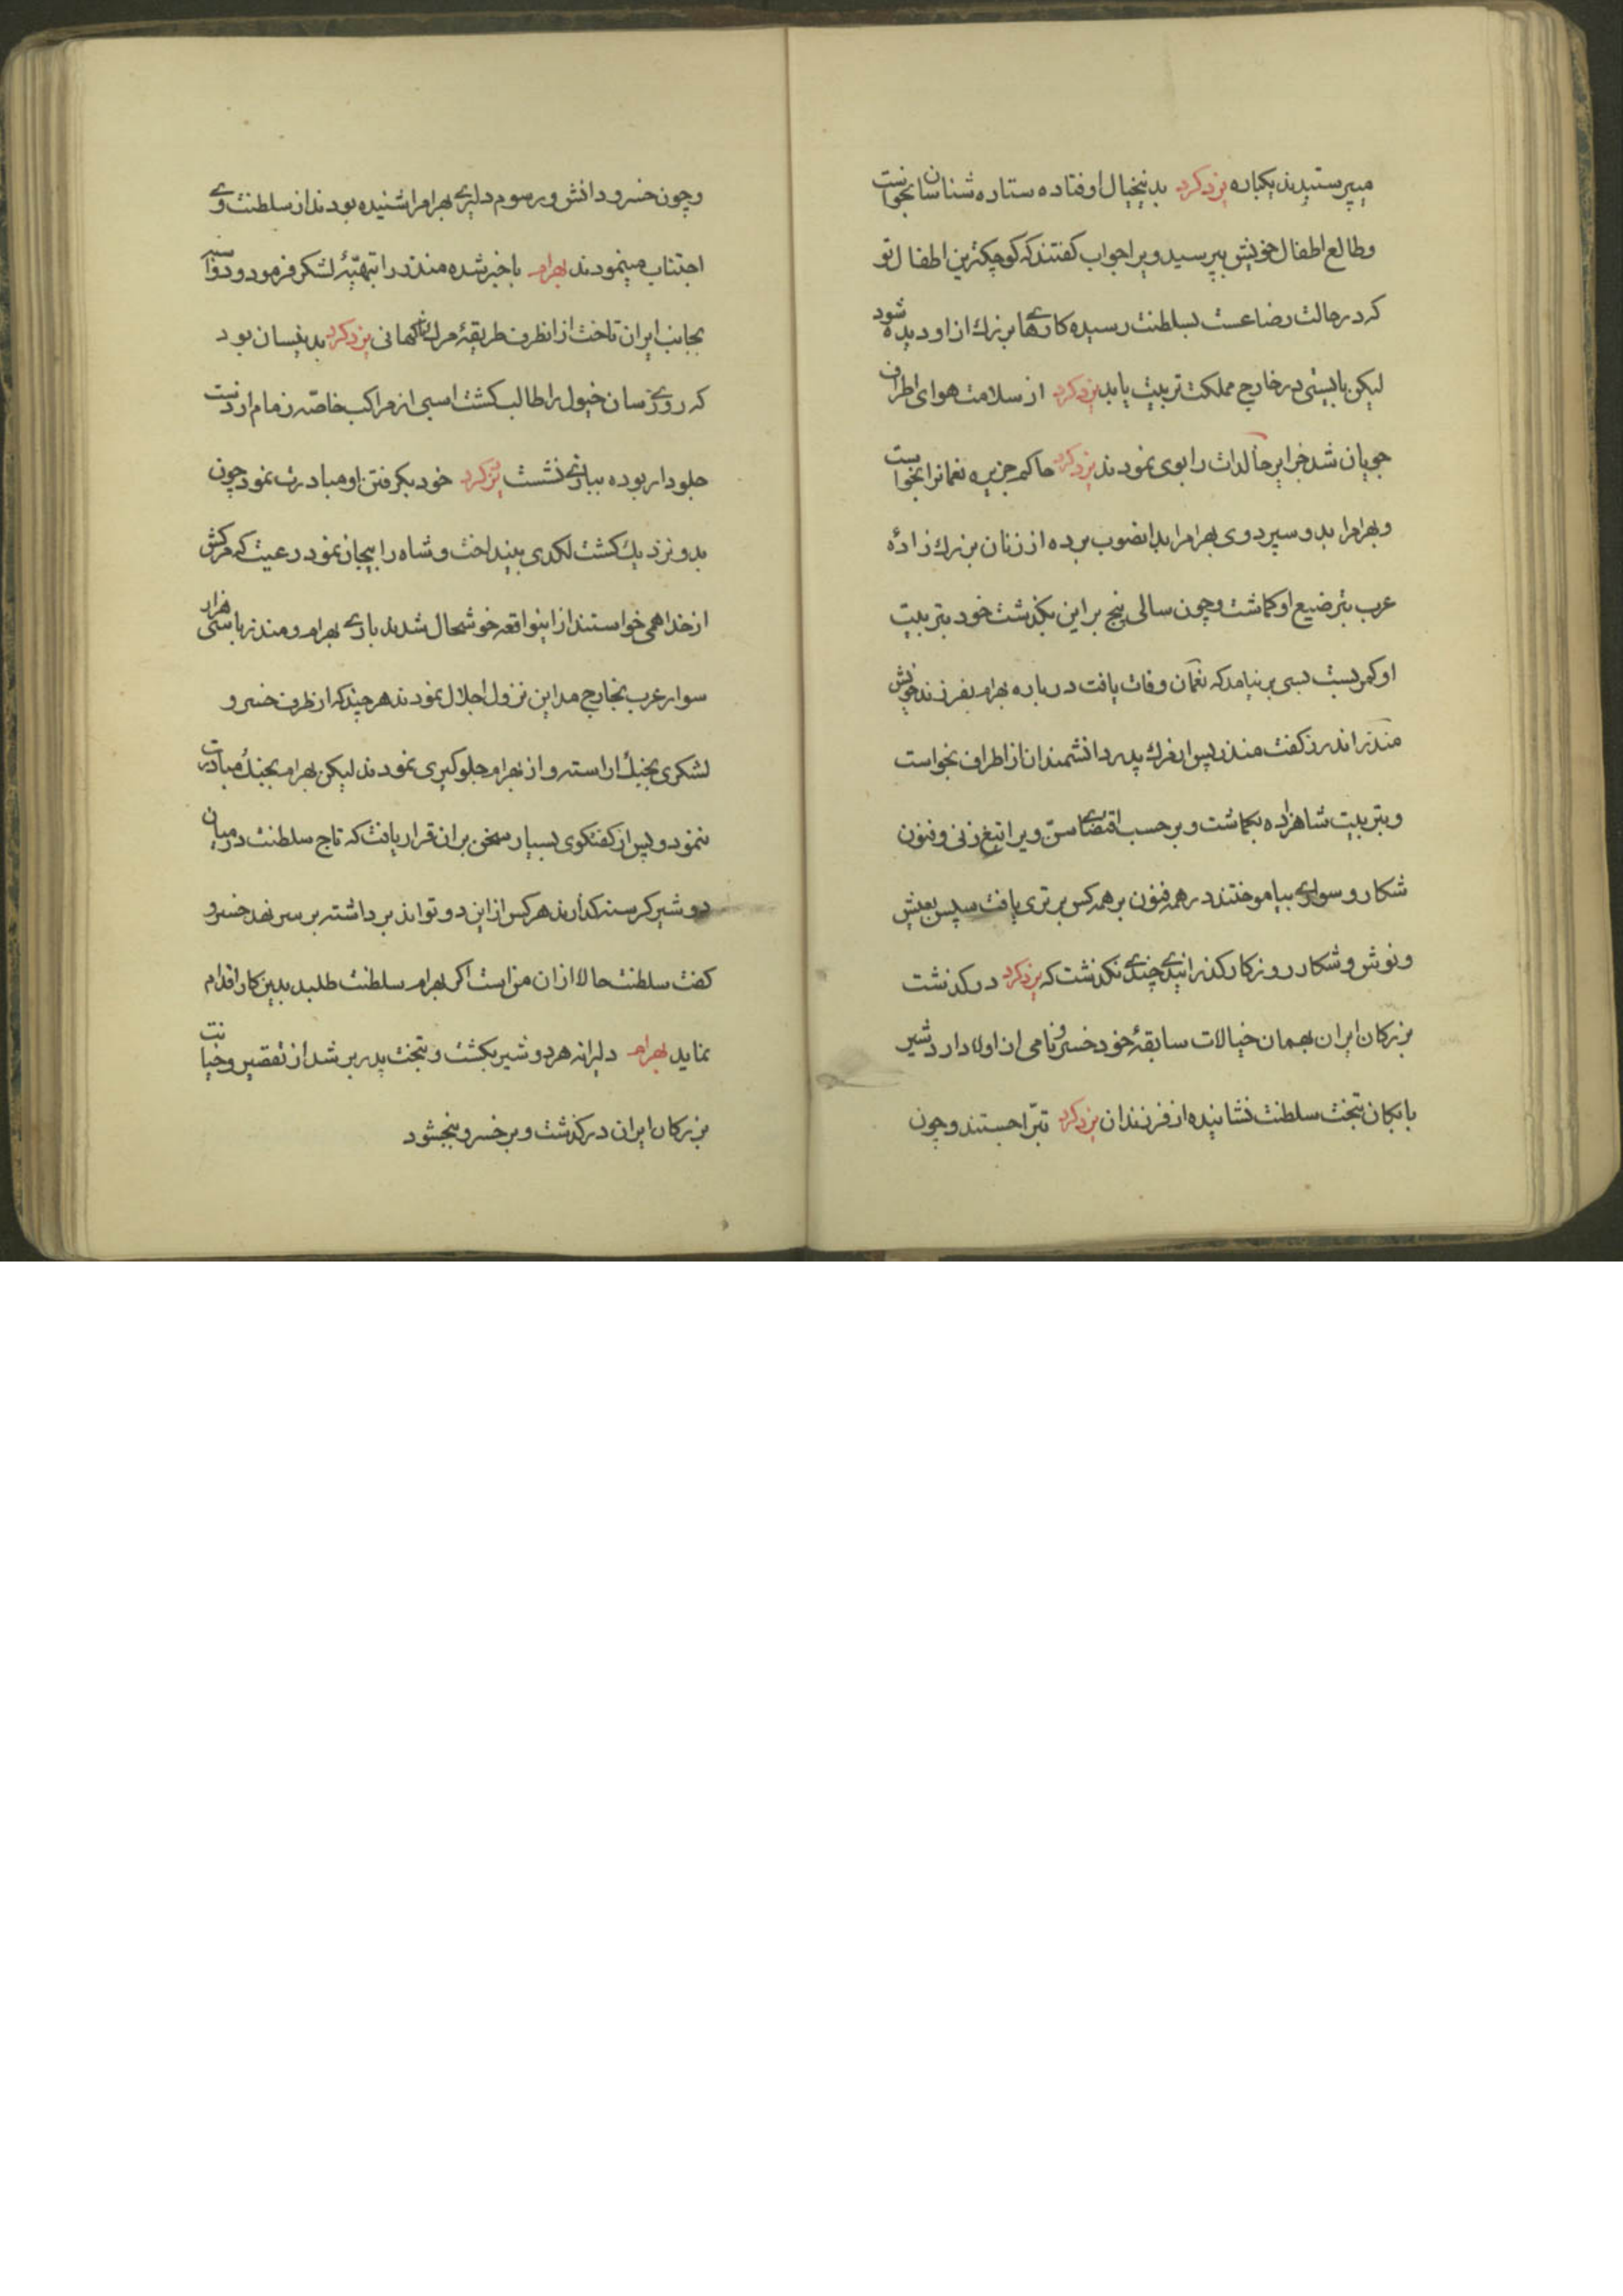 میپرستیدند یکباره یزدکرد بدینخیال اوفتاده ستاره شناسانرا بخواست
و طالع اطفال خویش بپرسید ویرا جواب کفتند که کوچکترین اطفال تو
که در حالت رضاعست بسلطنت رسیده کارهای بزرك از او دیده شود
لیکن بایستی در خارج مملکت تربیت یابد یزدکرد از سلامت هوای اطراف
جویان شد جزایر خالدات را بوی نمودند یزدکرد حاکم جزیره نعمانرا بخواست
و بهرامرا بدو سپرد وی بهرامرا بدانصوب برده از زنان بزرك زادهٔ
عرب بترضیع او کماشت و چون سالی پنج بر این بکذشت خود بتربیت
او کمر بست بسی بر نیامد که نعمان وفات یافت در باره بهرام بفرزند خویش
منذر اندرز کفت منذر پس از مرك پدر دانشمندان از اطراف بخواست
و بتربیت شاهزاده بکماشت و بر حسب اقتضای سن ویرا تیغ زنی و فنون
شکار و سواری بیاموختند در همه فنون بر همه کس برتری یافت سپس بعیش
و نوش و شکار روزکار کذرانیدی چندی نکذشت که یزدکرد درکذشت
بزرکان ایران بهمان خیالات سابقهٔ خود خسرو نامی از اولاد اردشیر
بابکان بتخت سلطنت نشانیده از فرزندان یزدکرد تبرّا جستند و چون
و چون خسرو دانش و رسوم دلیری بهرامرا شنیده بودند از سلطنت وی
اجتناب مینمودند بهرام با خبر شده منذر را بتهیّهٔ لشکر فرمود و دو اسبه
بجانب ایران تاخت از انطرف طریقهٔ مرك ناکهانی یزدکرد بدینسان بود
که روزی سان خیول را طالب کشت اسبی از مراکب خاصّه زمام از دست
جلودار ربوده ببازی نشست یزدکرد خود بکرفتن او مبادرت نمود چون
بدو نزدیك کشت لکدی بینداخت و شاه را بیجان نمود رعیت که مرکش
از خدا همی خواستند از اینواقعه خوشحال شدند باری بهرام و منذر با سی هزار
سوار عرب بخارج مداین نزول اجلال نمودند هر چند که از طرف خسرو
لشکری بجنك اراسته و از بهرام جلوکیری نمودند لیکن بهرام بجنك مبادرت
ننمود و پس از کفتکوی بسیار سخن بران قرار یافت که تاج سلطنت در میان
دو شیر کرسنه کذارند هر کس از این دو تواند برداشته بر سر نهد خسرو
کفت سلطنت حالا از ان من است اکر بهرام سلطنت طلبد بدین کار اقدام
نماید بهرام دلیرانه هر دو شیر بکشت و بتخت پدر بر شد از تقصیر و خیانت
بزرکان ایران درکذشت و بر خسرو ببخشود